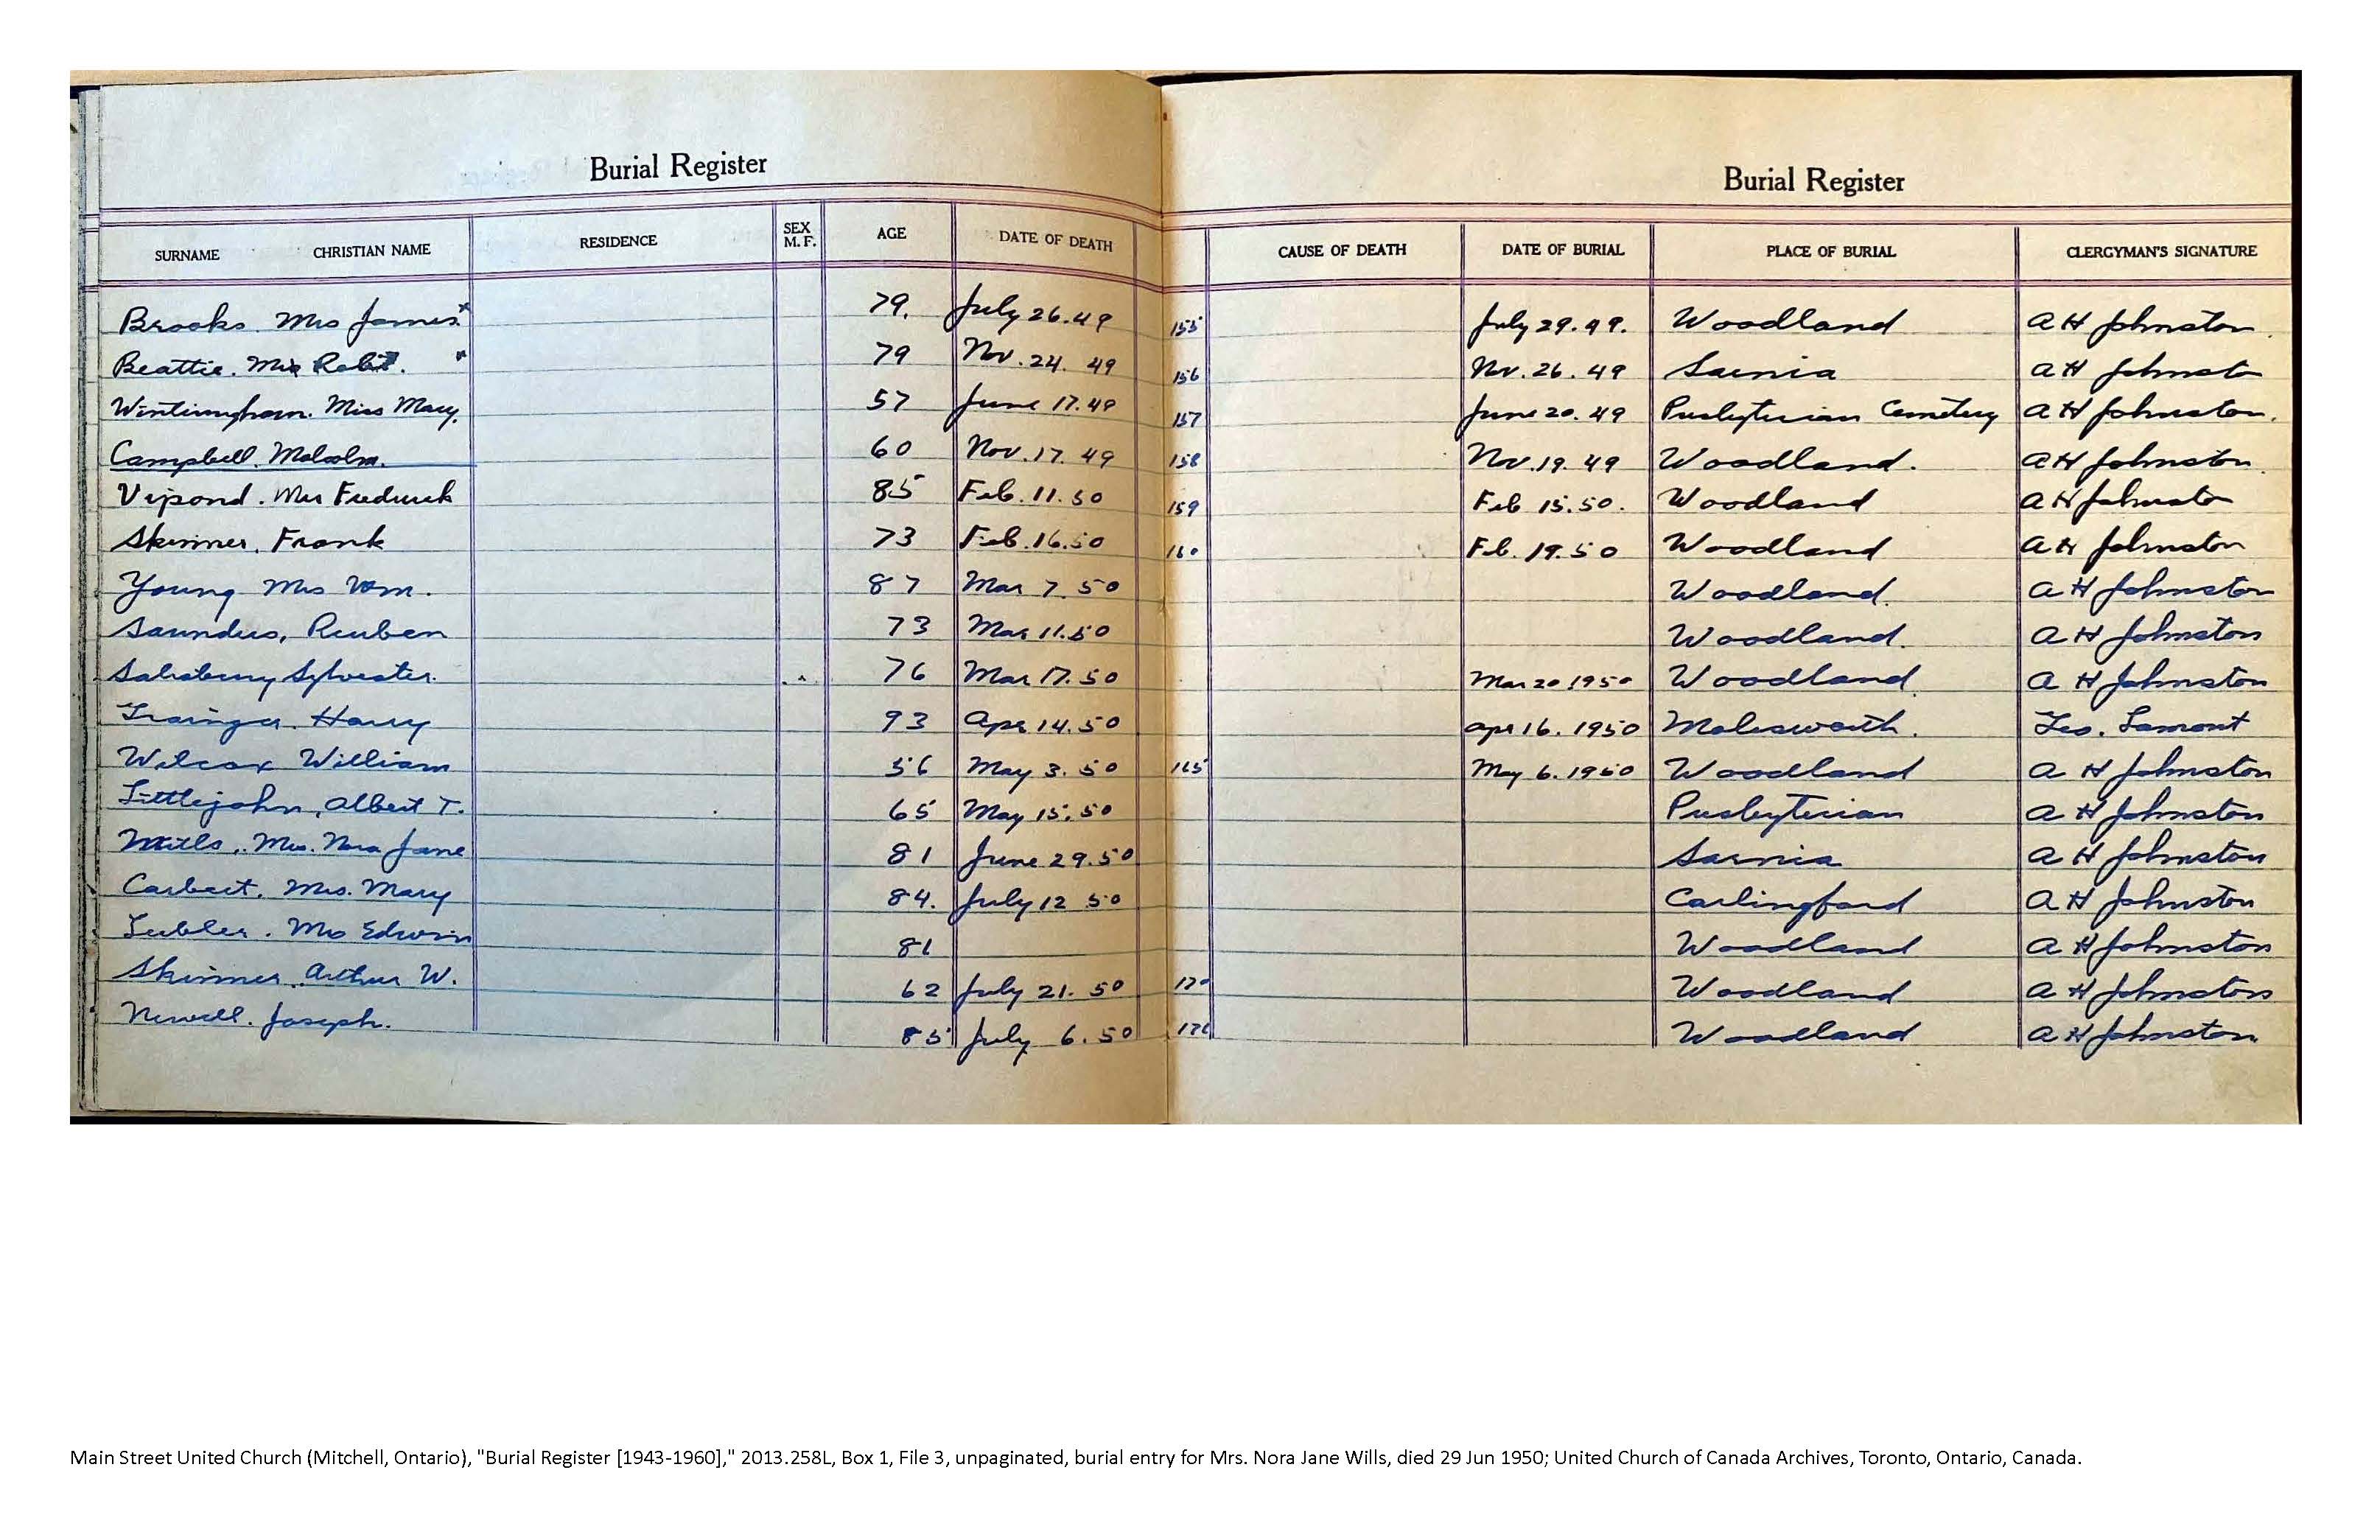 Burial Register Burial Register
SURNAME CHRISTIAN NAME RESIDENCE SEX M. F. AGE DATE OF DEATH CAUSE OF DEATH DATE OF BURIAL PLACE OF BURIAL CLERGYMAN'S SIGNATURE
Brooks. Mrs James 79. July 26.49 155 July 29.49. Woodland A H Johnston
Beattie. Mrs Robt. 79 Nov. 24. 49 156 Nov. 26. 49 Sarnia A H Johnston
Wintiningham. Miss Mary. 57 June 17.49 157 June 20. 49 Presbyterian Cemetery A H Johnston.
Campbell. Malcolm. 60 Nov. 17. 49 158 Nov. 19. 49 Woodland. A H Johnston
Vipond. Mrs Frederick 85 Feb. 11. 50 159 Feb 15. 50. Woodland A H Johnston
Skinner, Frank 73 Feb. 16.50 160 Feb. 19. 50 Woodland A H Johnston
Young Mrs Wm. 87 Mar 7. 50 Woodland. A H Johnston
Saunders, Reuben 73 Mar 11.50 Woodland. A H Johnston
Salisbury Sylvester. 76 Mar 17. 50 Mar 20 1950 Woodland A H Johnston
Harry 93 Apr 14. 50 Apr 16. 1950 Molesworth. Geo. Lamont
Wilcox William 56 May 3. 50 165 May 6. 1950 Woodland A H Johnston
Littlejohn, Albert T. 65 May 15. 50 Presbyterian A H Johnston
Wills, Mrs. Nora Jane 81 June 29.50 Sarnia A H Johnston
Carbert. Mrs. Mary 84. July 12 50 Carlingford A H Johnston
Mrs Edwin 81 Woodland A H Johnston
Skinner. Arthur W. 62 July 21. 50 170 Woodland A H Johnston
Newell. Joseph. 85 July 6. 50 171 Woodland A H Johnston
Main Street United Church (Mitchell, Ontario), "Burial Register [1943-1960]," 2013.258L, Box 1, File 3, unpaginated, burial entry for Mrs. Nora Jane Wills, died 29 Jun 1950; United Church of Canada Archives, Toronto, Ontario, Canada.